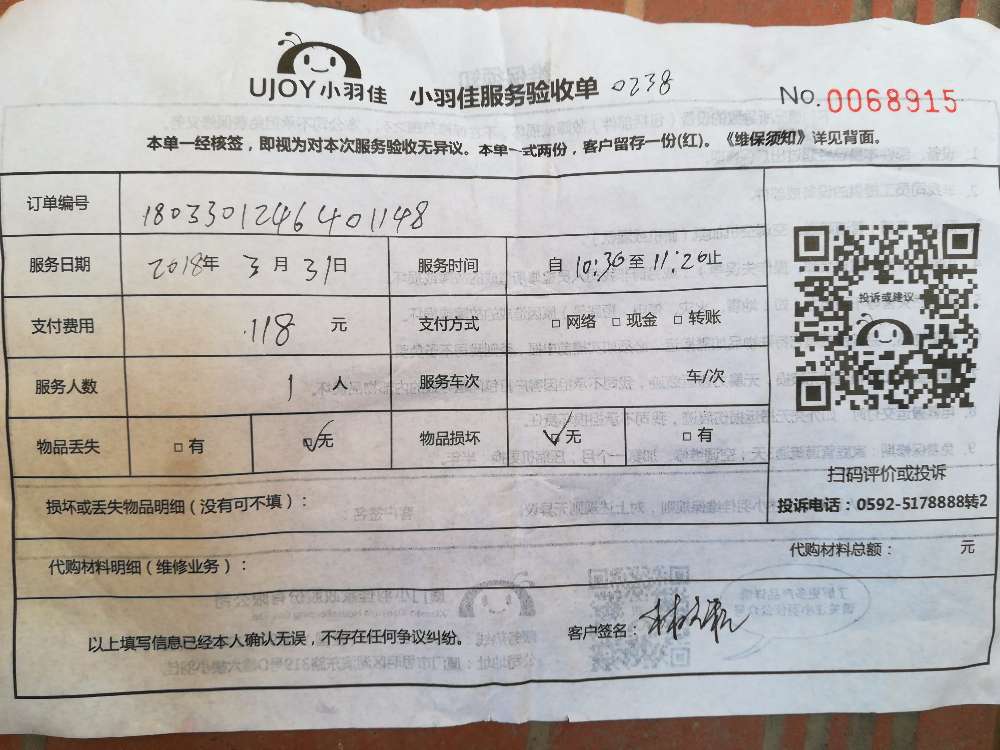 UJOY小羽佳 小羽佳服务验收单 0238 No. 0068915
本单一经核签，即视为对本次服务验收无异议。本单一式两份，客户留存一份(红)。《维保须知》详见背面。
订单编号 1803301246401148
服务日期 2018年 3月 31日 服务时间 自 10:30 至 11:20 止
支付费用 118 元 支付方式 □网络 □现金 □转账
投诉或建议
服务人数 1 人 服务车次 车/次
物品丢失 □有 ☑无 物品损坏 ☑无 □有
扫码评价或投诉
损坏或丢失物品明细（没有可不填）：
投诉电话：0592-5178888转2
代购材料明细（维修业务）： 代购材料总额： 元
以上填写信息已经本人确认无误，不存在任何争议纠纷。 客户签名：